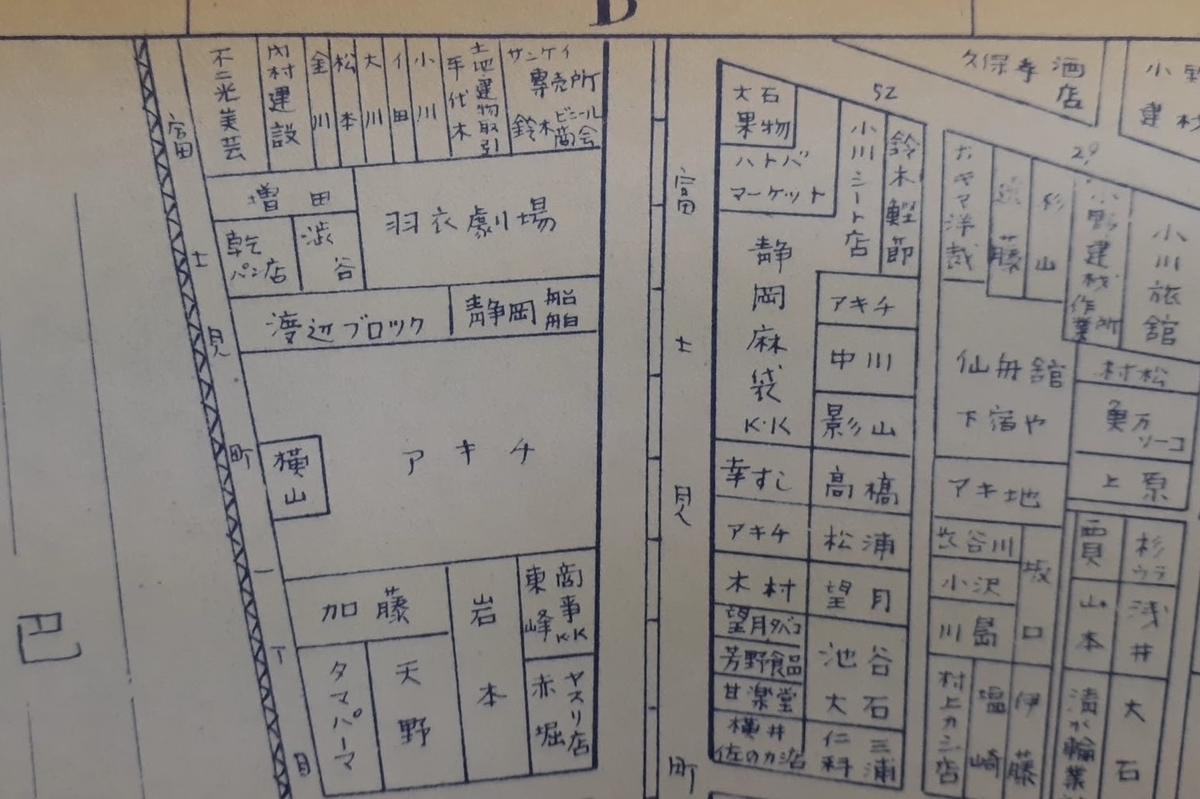 B
不二光美芸
内村建設
金川
松本
大川
イ田
小川
手代木
土地建物取引
サンケイ
専売所
鈴木ビニール商会
増田
乾パン店
渋谷
羽衣劇場
渡辺ブロック
静岡船舶
横山
アキチ
加藤
岩本
東峰商事K.K
タマパーマ
天野
赤堀ヤスリ店
富士見町一丁目
巴
富士見町
大石果物
ハトバ
マーケット
小川シート店
鈴木鰹節
52
静岡麻袋K.K
アキチ
中川
影山
幸すし
高橋
アキチ
松浦
木村
望月
望月タバコ
芳野食品
池谷
甘楽堂
大石
横井
佐のカ店
仁科
三浦
酒店
29
遠藤
杉山
小野建材作業所
小川旅館
仙舟館
下宿や
村松
ソーコ
アキ地
上原
渋谷川
坂口
小沢
川島
杉ウラ
山本
浅井
村上カシ店
塩崎
伊藤
大石